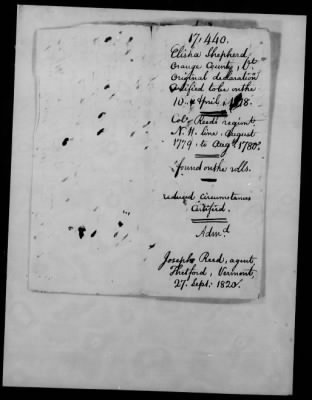 17,440.
Elisha Shepherd
Orange County, Vt
Original declaration
certified to be on the
10th April, 1818.
Col. Reed's regimt
N. H. line, August
1779, to Augt 1780.
found on the rolls.
reduced circumstances
Certified.
Admd
Joseph Reed, agent,
Thetford, Vermont,
27. Sept. 1820.